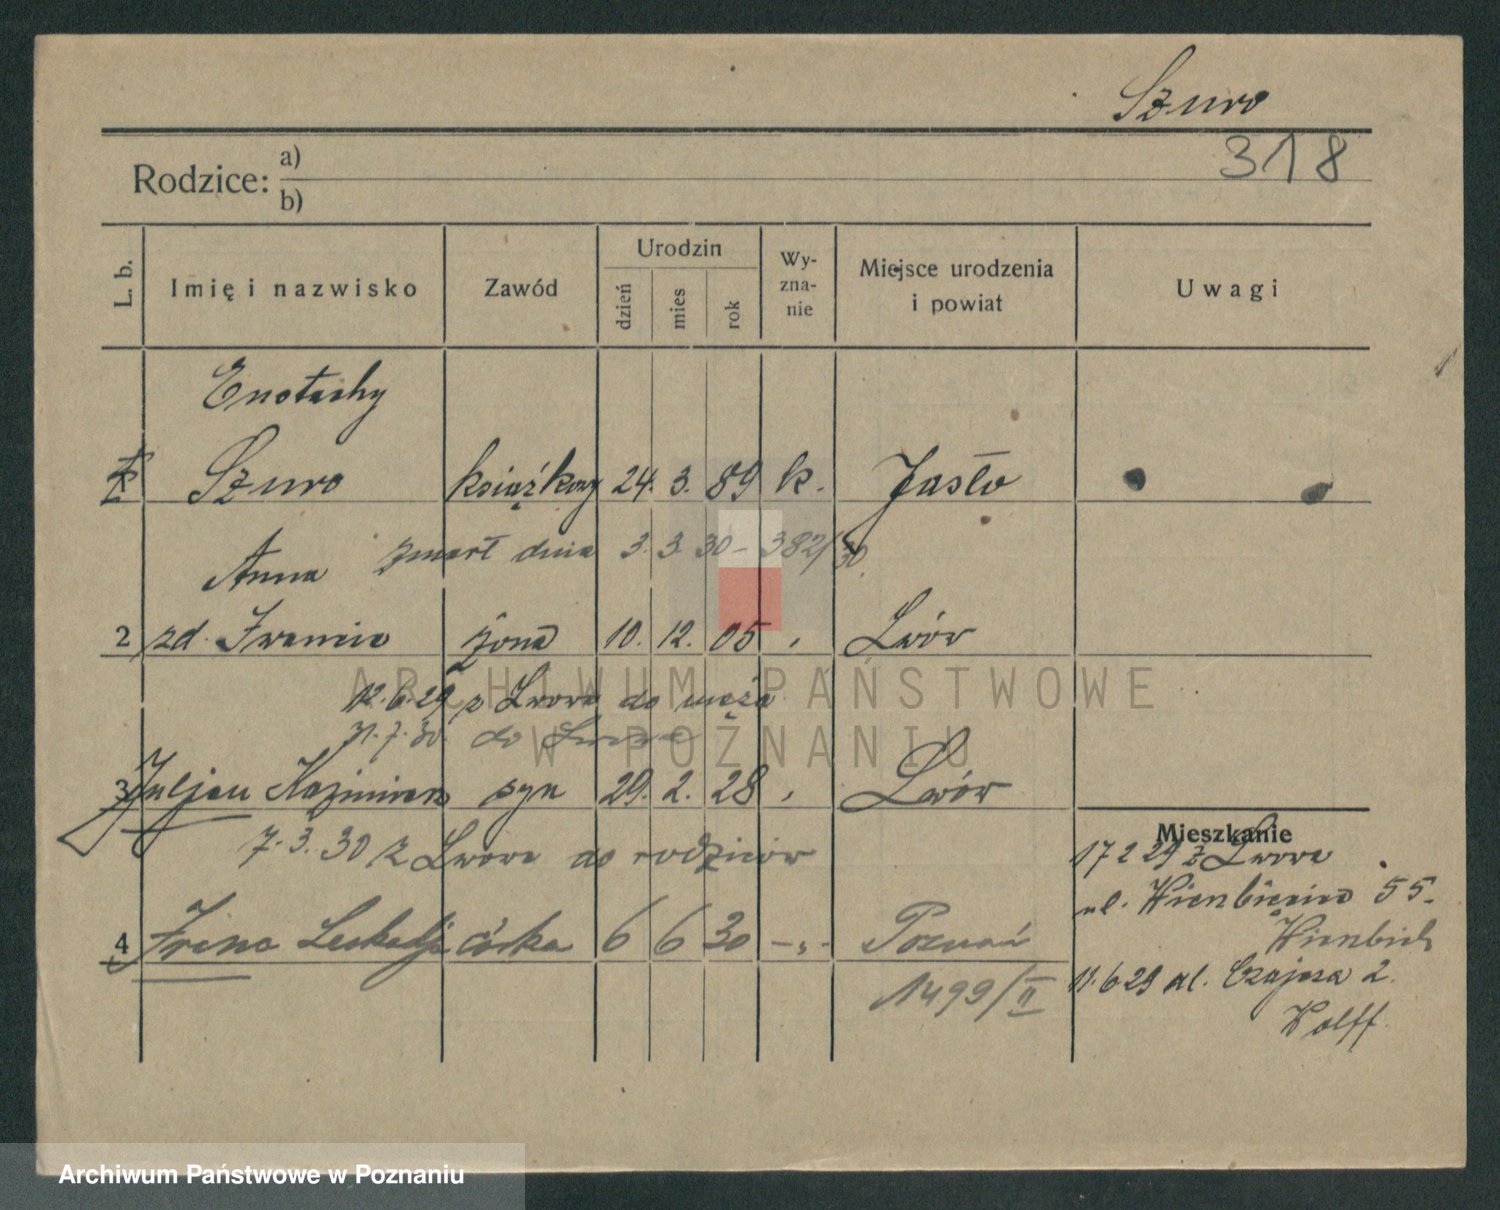 Szuro
318
Rodzice: a)
b)
L. b. Imię i nazwisko Zawód Urodzin dzień mies rok Wy-zna-nie Miejsce urodzenia i powiat Uwagi
Eustachy
Szuro książkowy 24. 3. 89 k. Jasło
zmarł dnia 3. 3. 30 – 382/30
Anna
2 zd. Iwanicio żona 10. 12. 05 Lwów
12.6.29 z Lwowa do męża
31.7.30 do Lwowa
3 Juljan Kazimierz syn 29. 2. 28 Lwów
Mieszkanie
7.3.30 z Lwowa do rodziców
17 2 29 z Lwowa
ul. 55.
4 Irena Leokadja córka 6 6 30 –„– Poznań
1499/II
11.6.29 ul. Czajcza 2.
Wolff
ARCHIWUM PAŃSTWOWE
W POZNANIU
Archiwum Państwowe w Poznaniu